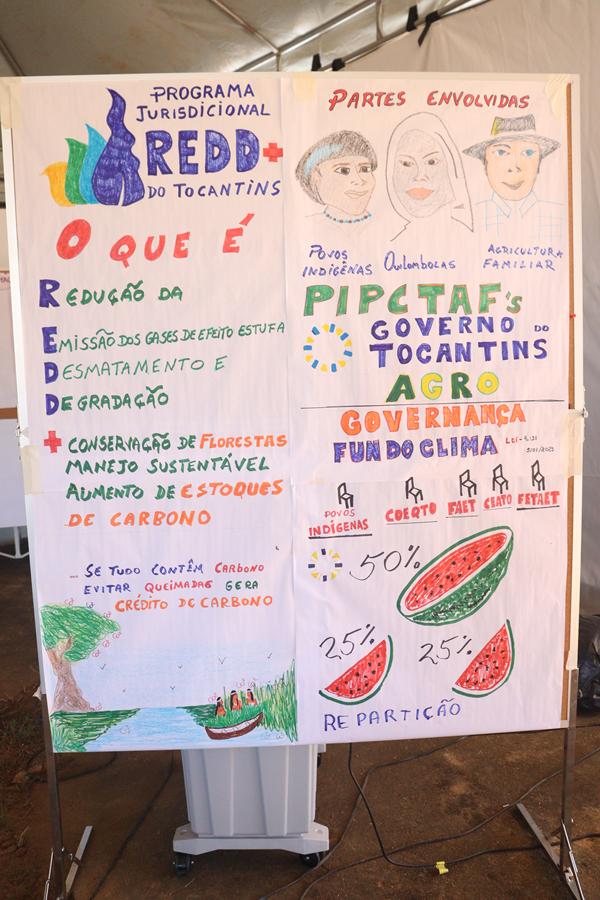 PROGRAMA
JURISDICIONAL
REDD+
DO TOCANTINS
O QUE É
REDUÇÃO DA
EMISSÃO DOS GASES DE EFEITO ESTUFA
DESMATAMENTO E
DEGRADAÇÃO
+ CONSERVAÇÃO DE FLORESTAS
MANEJO SUSTENTÁVEL
AUMENTO DE ESTOQUES
DE CARBONO
... SE TUDO CONTÊM CARBONO
EVITAR QUEIMADAS GERA
CRÉDITO DE CARBONO
PARTES ENVOLVIDAS
POVOS INDÍGENAS
QUILOMBOLAS
AGRICULTURA FAMILIAR
PIPCTAF's
GOVERNO DO
TOCANTINS
AGRO
GOVERNANÇA
FUNDO CLIMA
POVOS INDÍGENAS
COEQTO
FAET
FETAET
50%
25% 25%
REPARTIÇÃO